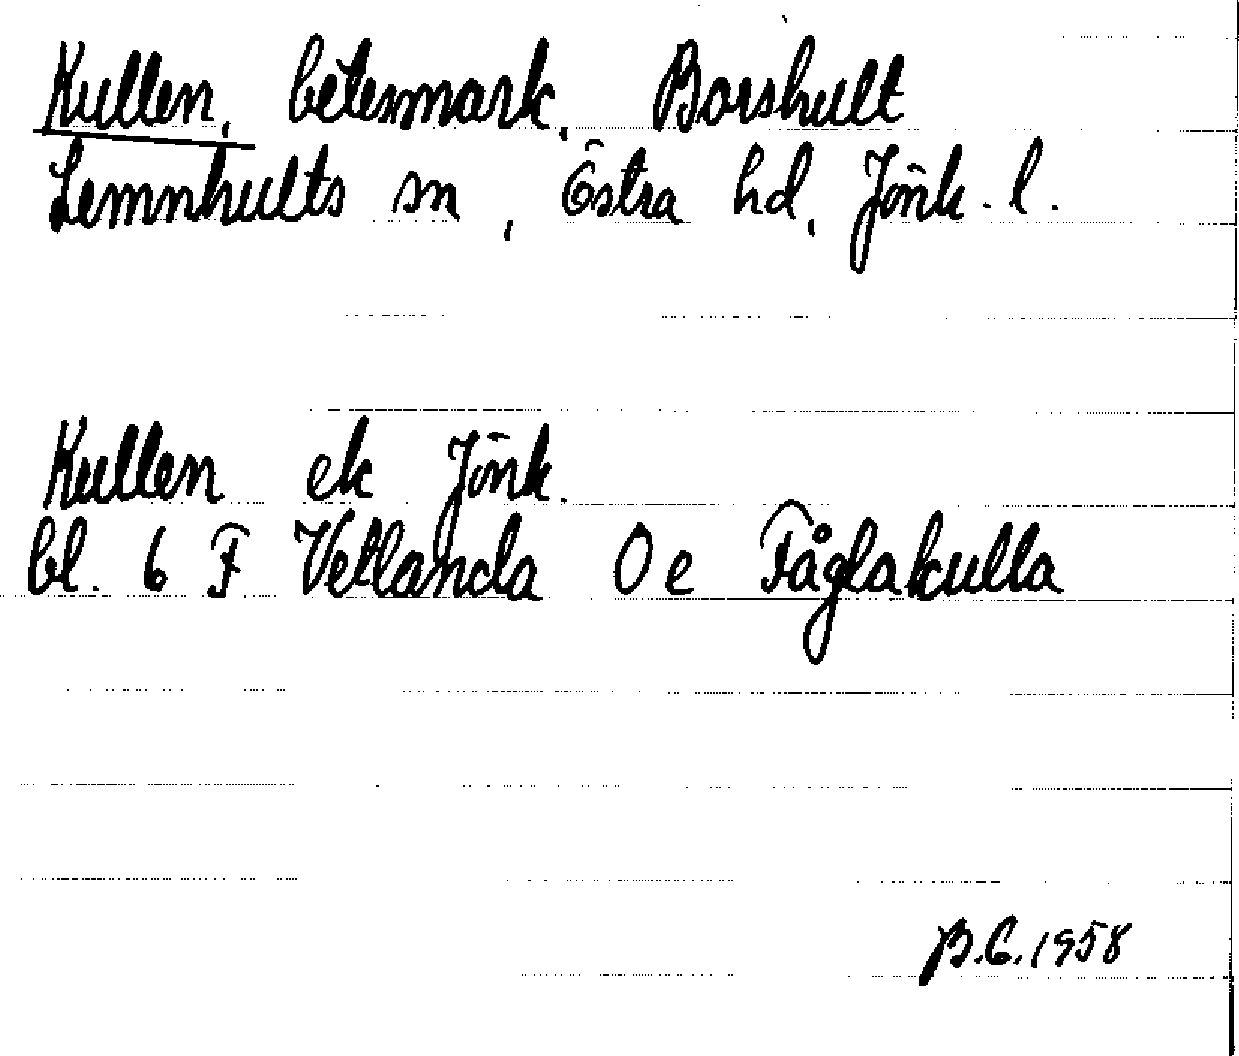 Kullen, betesmark, Borshult
Lemnhults sn, Östra hd, Jönk. l.
Kullen ek Jönk.
bl. 6 F Vetlanda O e Fåglakulla
B.C. 1958